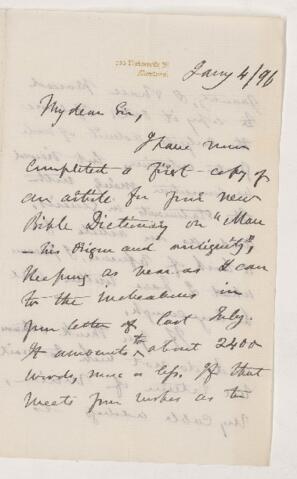 Montreal.
Jany 4/96
My dear Sir,
I have now
completed a first copy of
an article for your new
Bible Dictionary on "Man
– his Origin and antiquity",
Keeping as near as I can
to the indications in
your letter of last July.
It amounts to about 2400
words, more or less. If that
meets your wishes as to